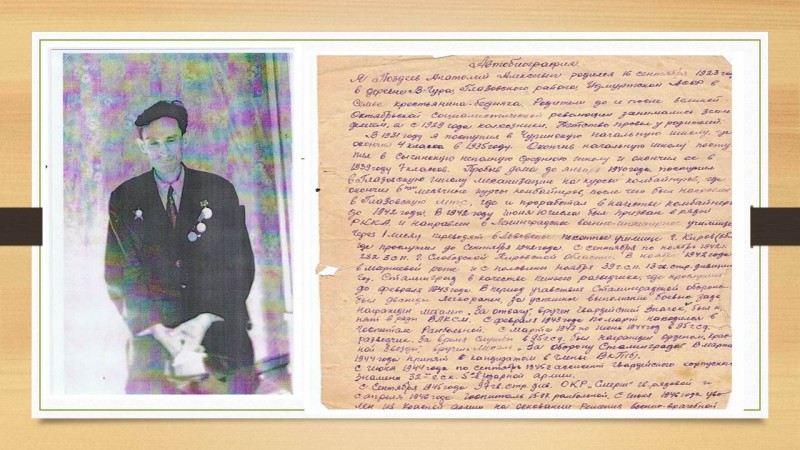 Автобиография.
Я Поздеев Анатолий Алексеевич родился 16 сентября 1923 го
в деревне В-Чура, Глазовского района, Удмуртской АССР в
семье крестьянина-бедняка. Родители до и после великой
Октябрьской социалистической революции занимались земле
делием, а с 1929 года колхозники. Детство провел у родителей.
В 1931 году я поступил в начальную школу, где
окончил 4 класса в 1935 году. Окончив начальную школу посту
пил в неполную среднюю школу и окончил ее в
1939 году 7 классов. Пробыв дома до января 1940 года поступил
в Глазовскую школу механизации на курсы комбайнеров, где
окончил 6 месячные курсы комбайнеров, после чего был направлен
в Глазовскую МТС, где и проработал в качестве комбайнера
до 1942 года. В 1942 году июня был призван в ряды
РККА и направлен в Ленинградское военно-инженерное училище
через 1 месяц переведен в пехотное училище г.
где проучился до сентября 1942 года. С сентября по ноябрь 1942 г.
232 З.С.П. г. Слободской Кировской области. В ноябре 1942 года
в маршевой роте и с половины ноября 39 г.с.п. 13 гв. стр. дивизии
гор. Сталинград в качестве пешего разведчика, где
до февраля 1943 года. В период участвия Сталинградской обороне
был дважды легко ранен, за успешное выполнение боевых зада
награжден медалью "За отвагу", вручен Гвардейский значок, был п
нят в ряды ВЛКСМ. С февраля 1943 года по март находился в
госпитале Ранбольной. С марта 1943 по июнь 1944 год в 95 г.с.д.
разведчик. За время службы в 95 г.с.д. был награжден орденом "Крас
ной Звезды", вручен медаль "За оборону Сталинграда". В марте
1944 года принят в кандидаты в члены ВКП(б).
С июня 1944 года по сентябрь 1945 г. гвардейского корпуса
знамени 32 г.с.к. 5й ударной армии.
С сентября 1945 года 97 гв. стр. див. ОКР "Смерш" гв. рядовой и
с апреля 1946 года госпиталь ранбольной. С июня 1946 года уво
лен из Красной Армии на основании решения военно-врачебной